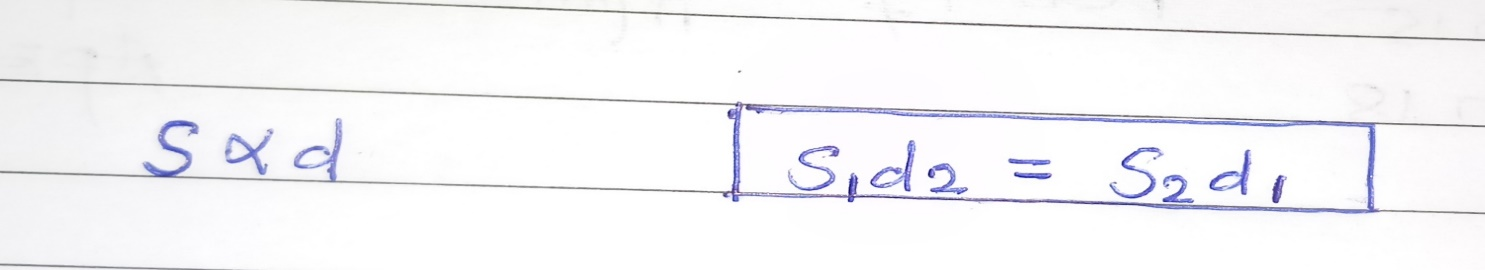 S ∝ d    S₁d₂ = S₂d₁